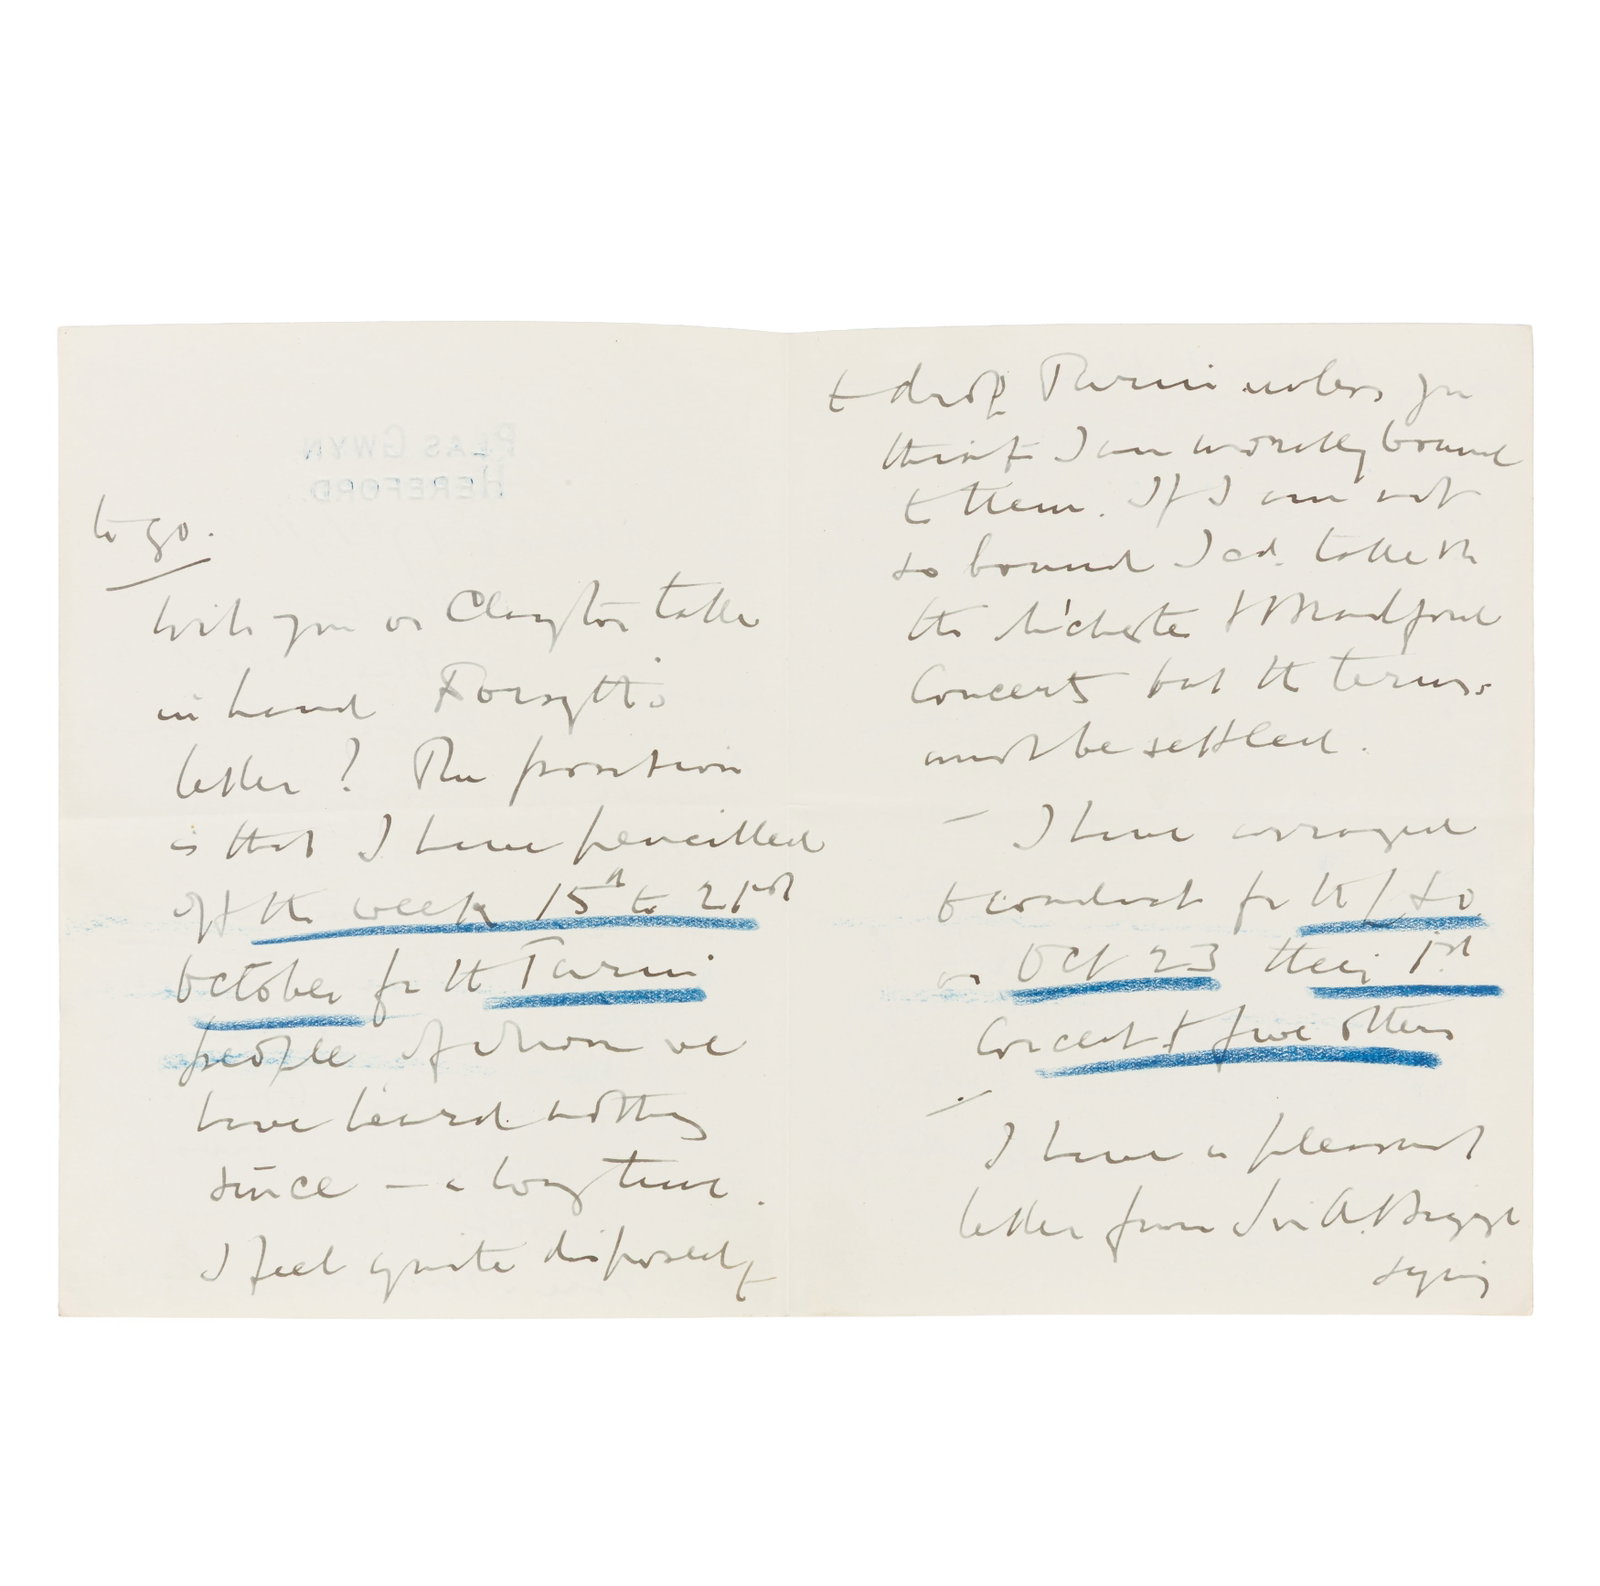 PLAS GWYN
HEREFORD
to go.
Will you or Clayton take
in hand Forsyth's
letter? The position
is that I have pencilled
off the week 15th to 21st
October for the Turin
people of whom we
have heard nothing
since — a long time.
I feel quite disposed
to drop Turin unless you
think I am morally bound
to them. If I am not
so bound I cd. take
the M'chester & Bradford
Concerts but the terms
must be settled.
— I have arranged
to conduct for the LSO
on Oct 23 their 1st
Concert & five others
— I have a pleasant
letter from Sir A.
saying